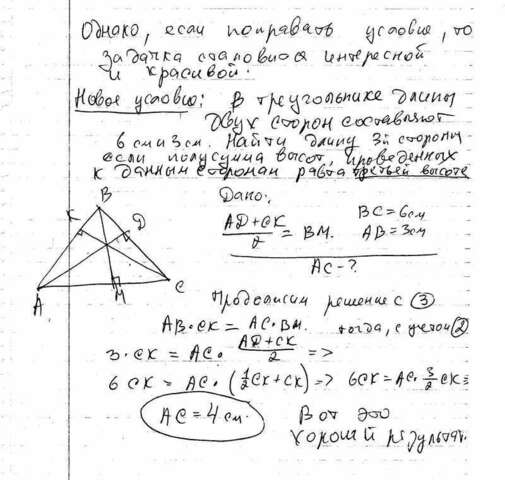 Однако, если поправать условие, то
задачка становится интересной
и красивой.
Новое условие: В треугольнике длины
двух сторон составляют
6 см и 3 см. Найти длину 3й стороны
если полусумма высот, проведенных
к данным сторонам равна третьей высоте
Дано:
AD+CK/2 = BM.
BC = 6см
AB = 3см
AC - ?
B
K
D
A
M
C
Продолжим решение с ③
AB·CK = AC·BM. тогда, с учетом ②
3·CK = AC· AD+CK/2 =>
6 CK = AC·(1/2 CK + CK) => 6CK = AC· 3/2 CK =
AC = 4 см.
Вот это
хороший результат.